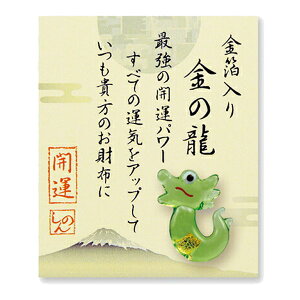 金箔入り
金の龍
最強の開運パワー
すべての運気をアップして
いつも貴方のお財布に
開運
しのん